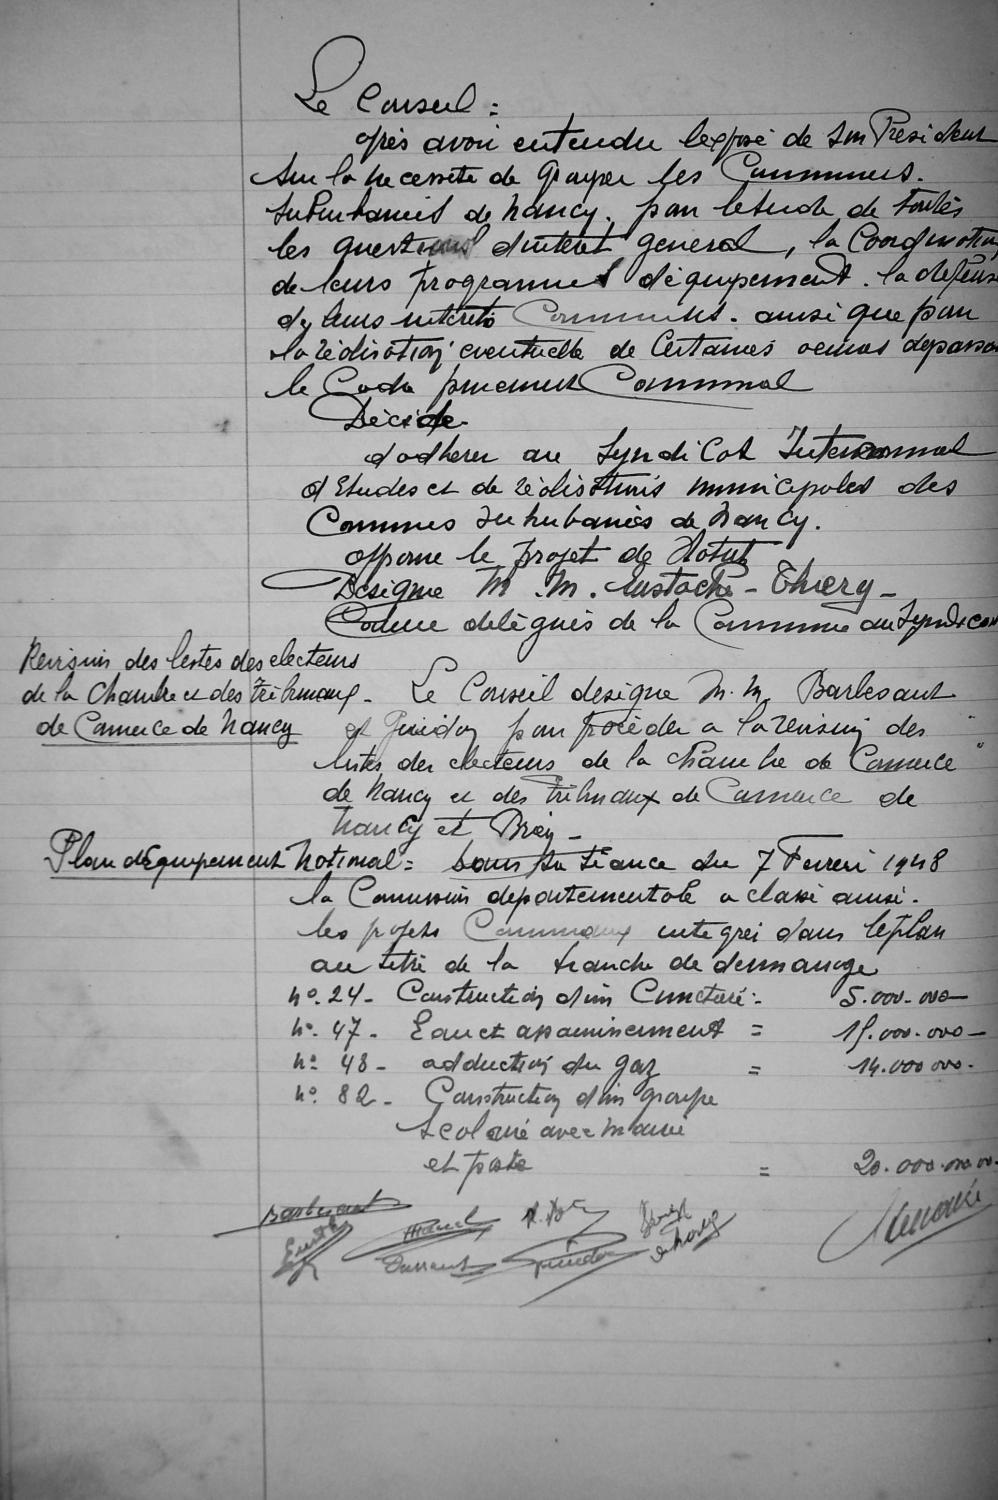 Le Conseil :
après avoir entendu l'exposé de son Président
sur la nécessité de grouper les Communes
suburbaines de Nancy, pour l'étude de toutes
les questions d'intérêt général, la Coordination
de leurs programmes d'équipement. la défense
de leurs intérêts Communs. ainsi que pour
la réalisation éventuelle de Certaines
le Cadre purement Communal
Décide
d'adhérer au Syndicat Intercommunal
d'Etudes et de réalisations municipales des
Communes suburbaines de Nancy.
approuve le projet de Statuts
Désigne M.M. Eustache - Thiery -
Comme délégués de la Commune au Syndicat
Revision des listes des electeurs
de la Chambre et des Tribunaux -
de Commerce de Nancy
Le Conseil désigne M.M. Barbesant
et Guidon pour procéder a la revision des
listes des electeurs de la Chambre de Commerce
de Nancy et des Tribunaux de Commerce de
Nancy et Briey -
Plan d'Equipement National = Dans sa séance du 7 Fevrier 1948
la Commission départementale a classé ainsi.
les projets Communaux intégrés dans le plan
au titre de la tranche de démarrage
N°. 24 - Construction d'un Cimetière :- 5.000.000 -
N°. 47 - Eau et assainissement = 15.000.000 -
N° 48 - adduction du gaz = 14.000 000.
N°. 82 - Construction d'un groupe
Scolaire avec Mairie
et poste = 20.000.000.00
Barbesant